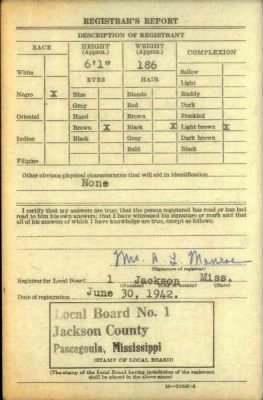 REGISTRAR'S REPORT
DESCRIPTION OF REGISTRANT
RACE HEIGHT (Approx.) WEIGHT (Approx.) COMPLEXION
6'1" 186
White EYES HAIR Sallow
Light
Negro X Blue Blonde Ruddy
Gray Red Dark
Oriental Hazel Brown Freckled
Brown X Black X Light brown X
Indian Black Gray Dark brown
Bald Black
Filipino
Other obvious physical characteristics that will aid in identification
None
I certify that my answers are true; that the person registered has read or has had
read to him his own answers; that I have witnessed his signature or mark and that
all of his answers of which I have knowledge are true, except as follows:
Mrs. A. L. Monroe
(Signature of registrar)
Registrar for Local Board 1 Jackson Miss.
(Number) (City or county) (State)
Date of registration June 30, 1942.
Local Board No. 1
Jackson County
Pascagoula, Mississippi
(STAMP OF LOCAL BOARD)
(The stamp of the Local Board having jurisdiction of the registrant
shall be placed in the above space)